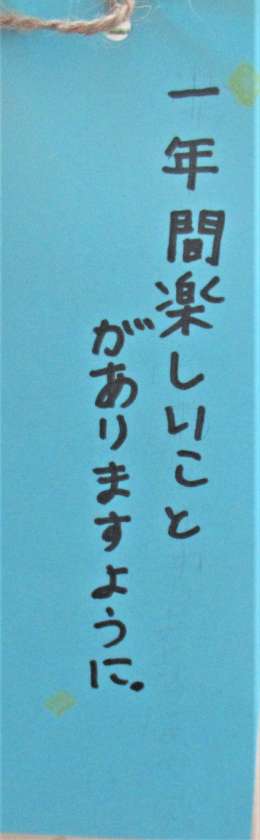 一年間楽しいこと
がありますように。